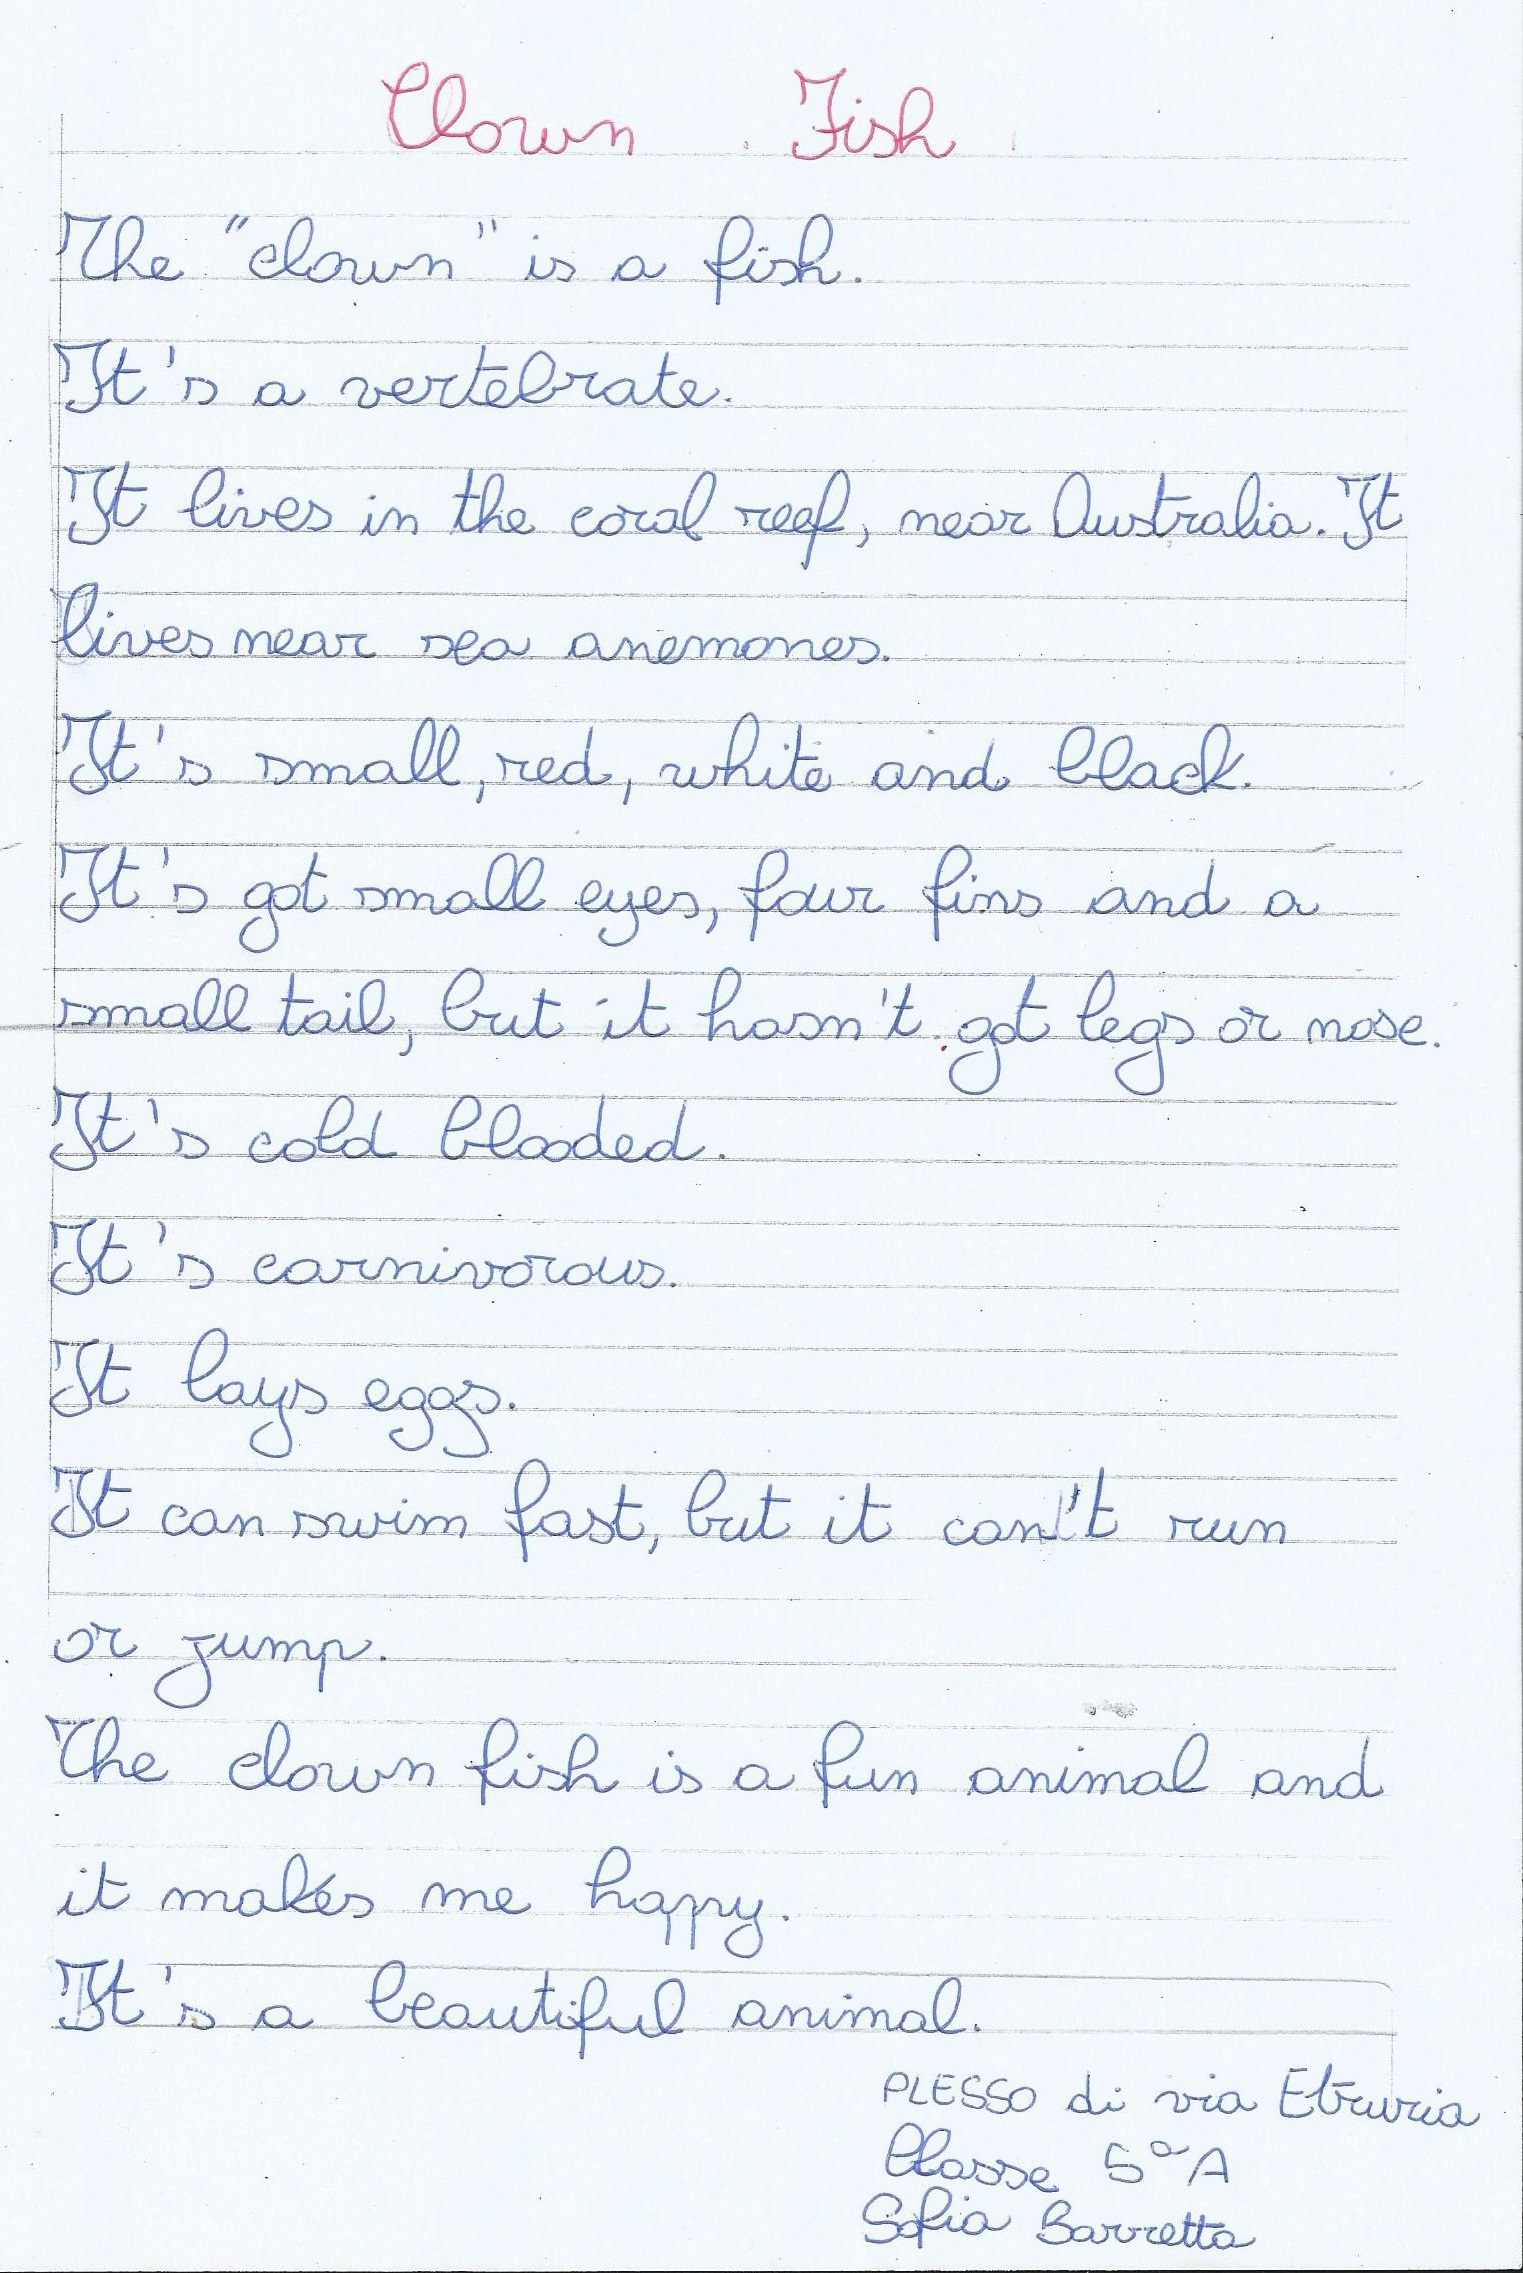 Clown Fish
The "clown" is a fish.
It's a vertebrate.
It lives in the coral reef, near Australia. It
lives near sea anemones.
It's small, red, white and black.
It's got small eyes, four fins and a
small tail, but it hasn't got legs or nose.
It's cold blooded.
It's carnivorous.
It lays eggs.
It can swim fast, but it can't run
or jump.
The clown fish is a fun animal and
it makes me happy.
It's a beautiful animal.
PLESSO di via Etruria
Classe 5ª A
Sofia Barretta